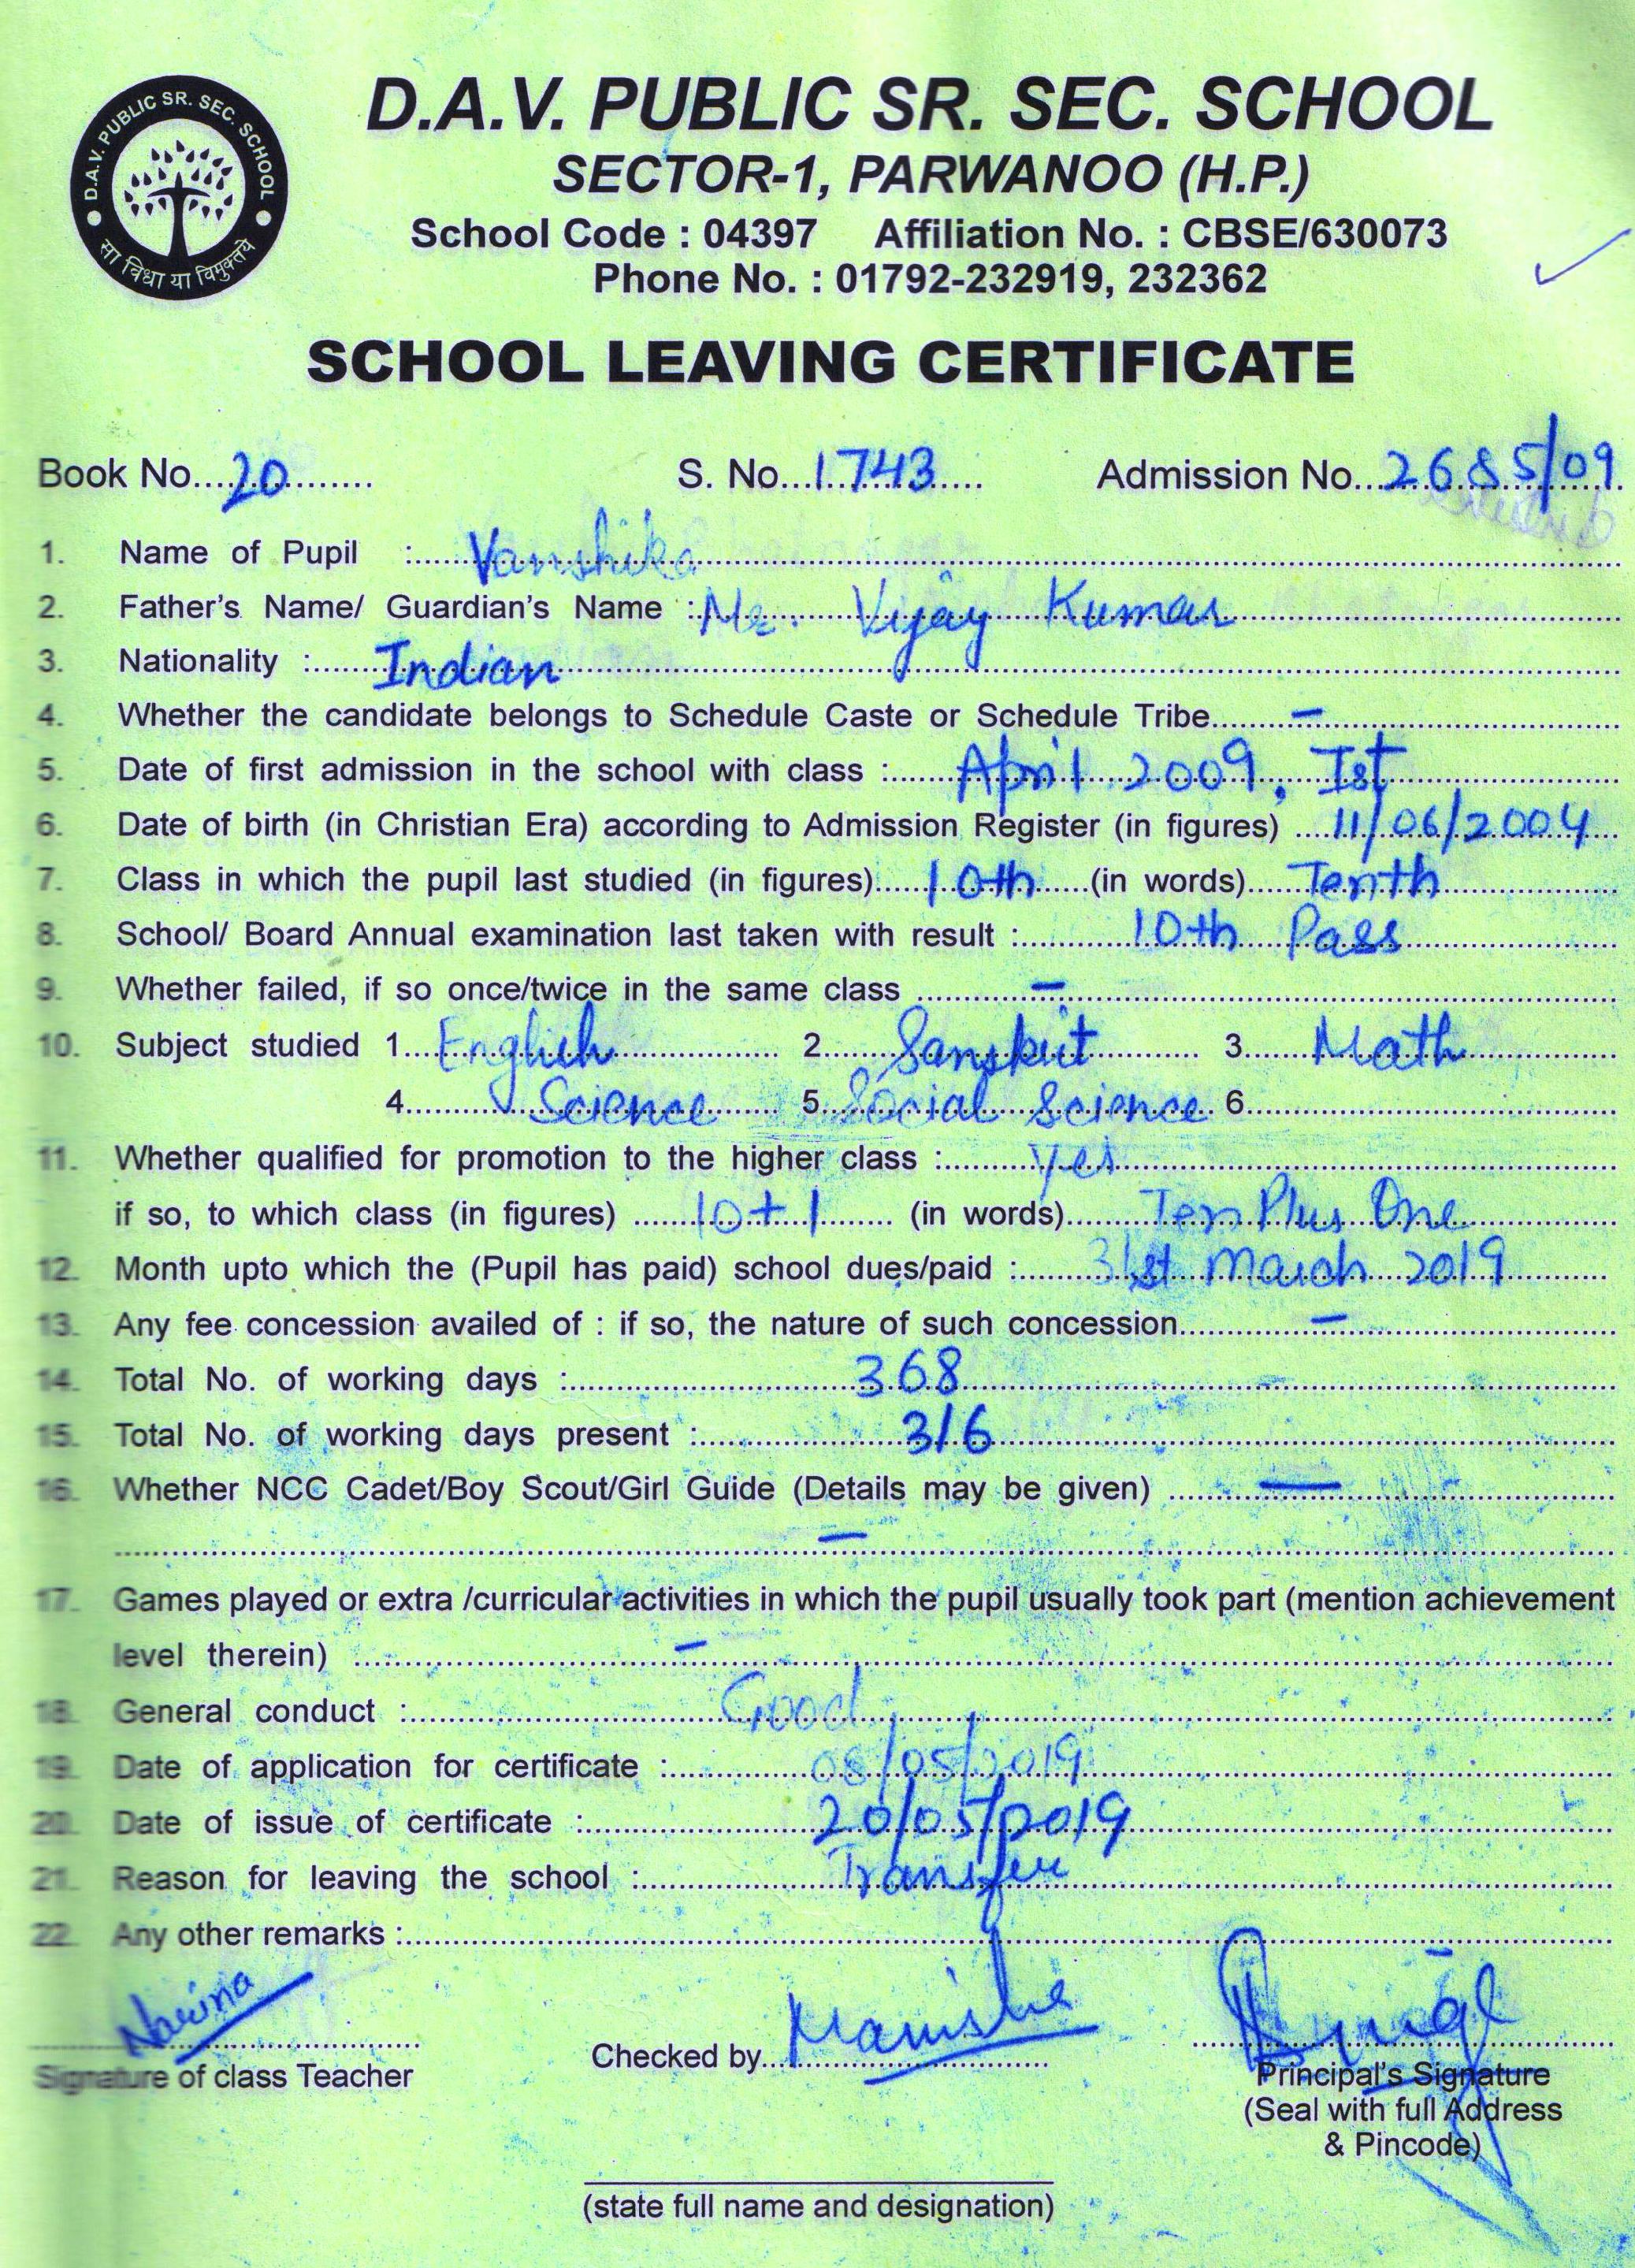 D.A.V. PUBLIC SR. SEC. SCHOOL
सा विधा या विमुक्तये
D.A.V. PUBLIC SR. SEC. SCHOOL
SECTOR-1, PARWANOO (H.P.)
School Code : 04397 Affiliation No. : CBSE/630073
Phone No. : 01792-232919, 232362
SCHOOL LEAVING CERTIFICATE
Book No. 20 S. No. 1743 Admission No. 2685/09
1. Name of Pupil : Vanshika
2. Father's Name/ Guardian's Name : Mr. Vijay Kumar
3. Nationality : Indian
4. Whether the candidate belongs to Schedule Caste or Schedule Tribe -
5. Date of first admission in the school with class : April 2009, Ist
6. Date of birth (in Christian Era) according to Admission Register (in figures) 11/06/2004
7. Class in which the pupil last studied (in figures) 10th (in words) Tenth
8. School/ Board Annual examination last taken with result : 10th Pass
9. Whether failed, if so once/twice in the same class -
10. Subject studied 1 English 2 Sanskrit 3 Math
4 Science 5 Social Science 6
11. Whether qualified for promotion to the higher class : Yes
if so, to which class (in figures) 10+1 (in words) Ten Plus One
12. Month upto which the (Pupil has paid) school dues/paid : 31st March 2019
13. Any fee concession availed of : if so, the nature of such concession -
14. Total No. of working days : 368
15. Total No. of working days present : 316
16. Whether NCC Cadet/Boy Scout/Girl Guide (Details may be given) -
-
17. Games played or extra /curricular activities in which the pupil usually took part (mention achievement
level therein) -
18. General conduct : Good
19. Date of application for certificate : 08/05/2019
20. Date of issue of certificate : 20/05/2019
21. Reason for leaving the school : Transfer
22. Any other remarks : -
Signature of class Teacher
Checked by Manisha
Principal's Signature
(Seal with full Address
& Pincode)
(state full name and designation)